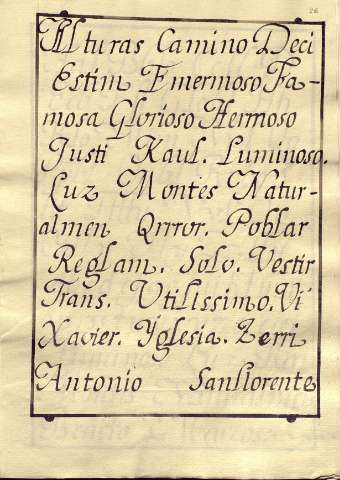 26
Alturas Camino Deci
Estim Fmermoso Fa-
mosa Glorioso Hermoso
Justi Kaul. Luminoso.
Luz Montes Natur-
almen Qrrror. Poblar
Reglam. Solo. Vestir
Trans. Utilissimo. Vi
Xavier. Yglesia. Zerri
Antonio Sanllorente